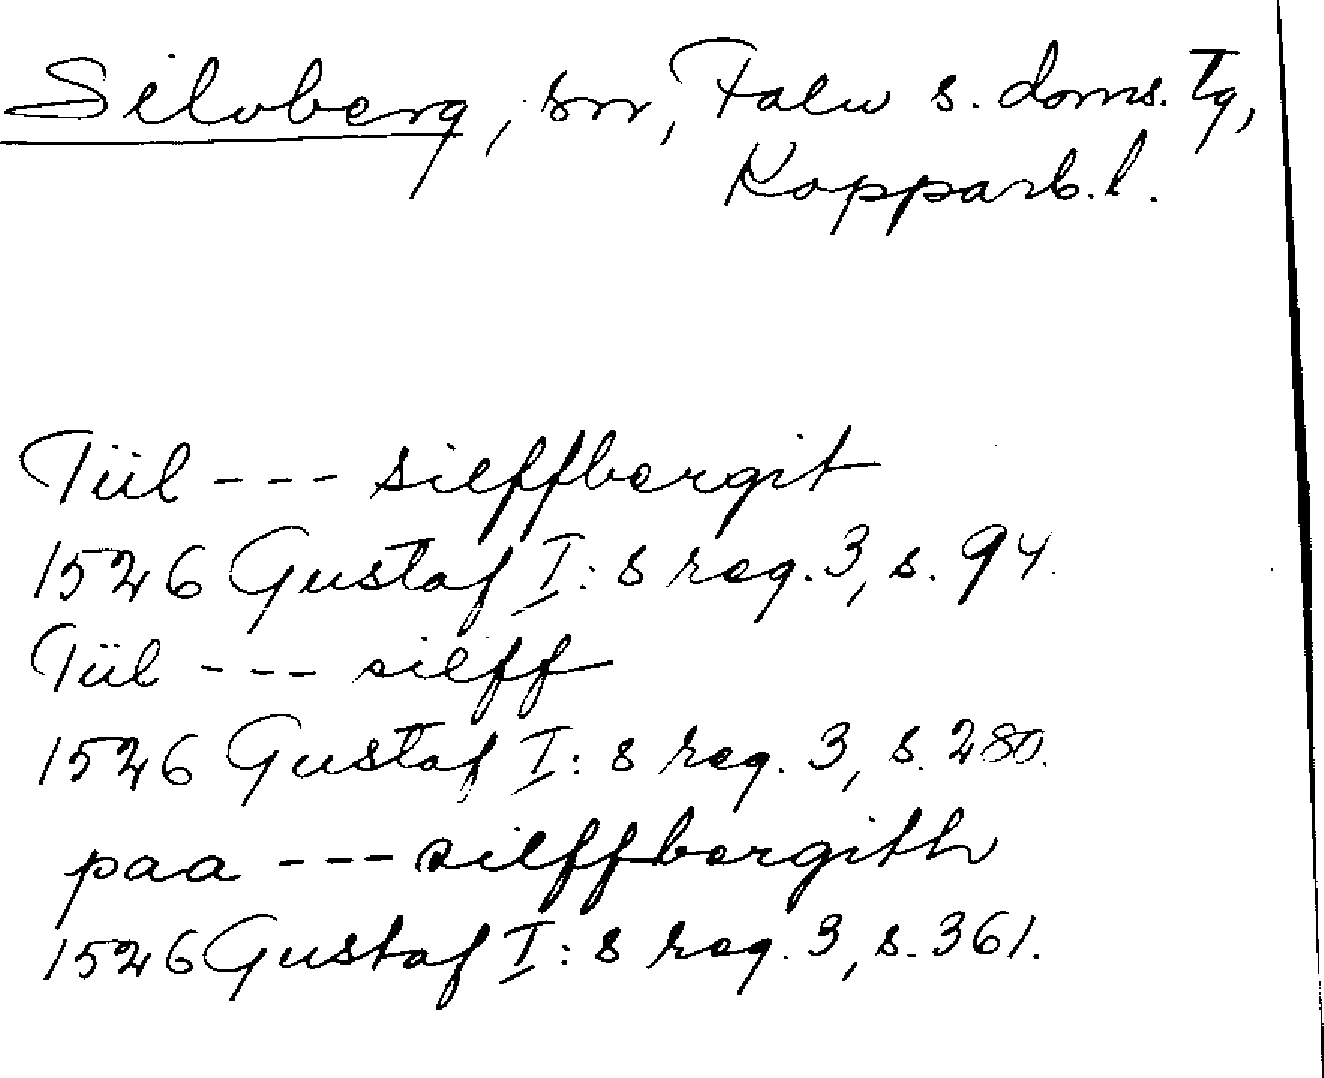 Silvberg, sn, Falu s. doms. Tg,
Kopparb. l.
Tiil --- silffbergit
1526 Gustaf I:s reg. 3, s. 94.
Tiil --- silff
1526 Gustaf I:s reg. 3, s. 280.
paa --- silffbergith
1526 Gustaf I:s reg. 3, s. 361.